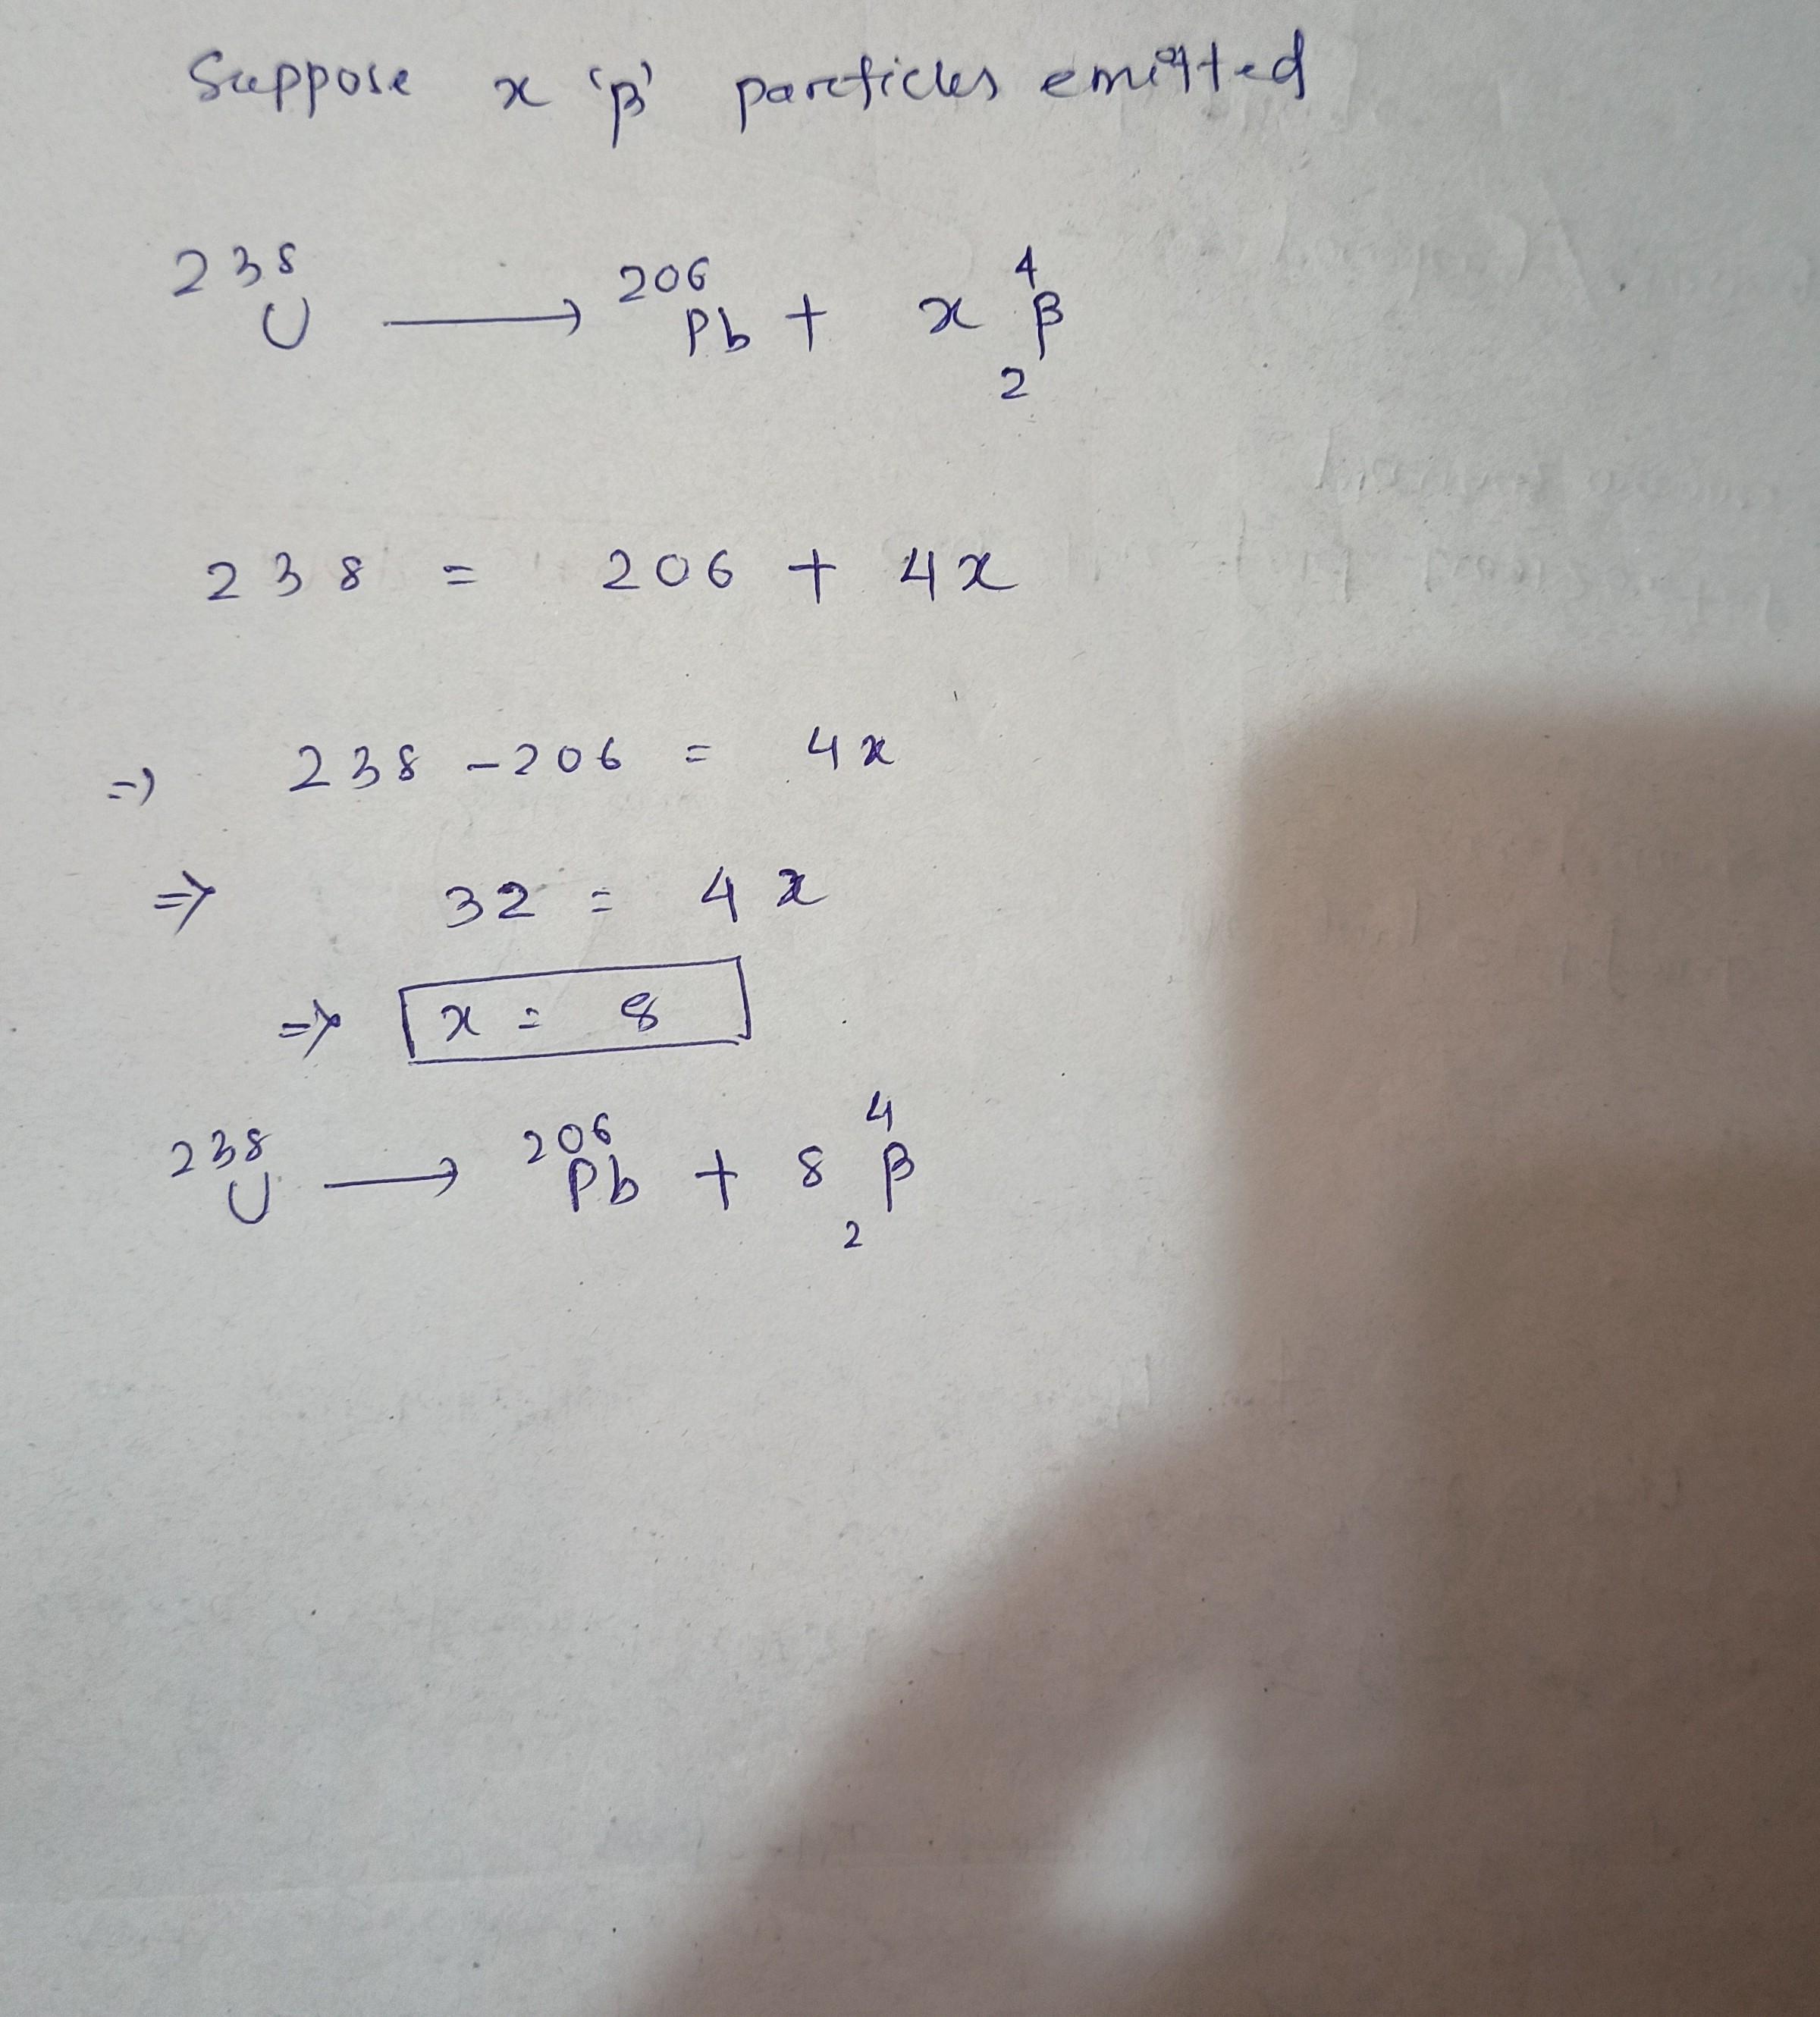 Suppose x 'β' particles emitted
²³⁸U ⟶ ²⁰⁶Pb + x ⁴₂β
238 = 206 + 4x
⇒ 238 - 206 = 4x
⇒ 32 = 4x
⇒ x = 8
²³⁸U ⟶ ²⁰⁶Pb + 8 ⁴₂β